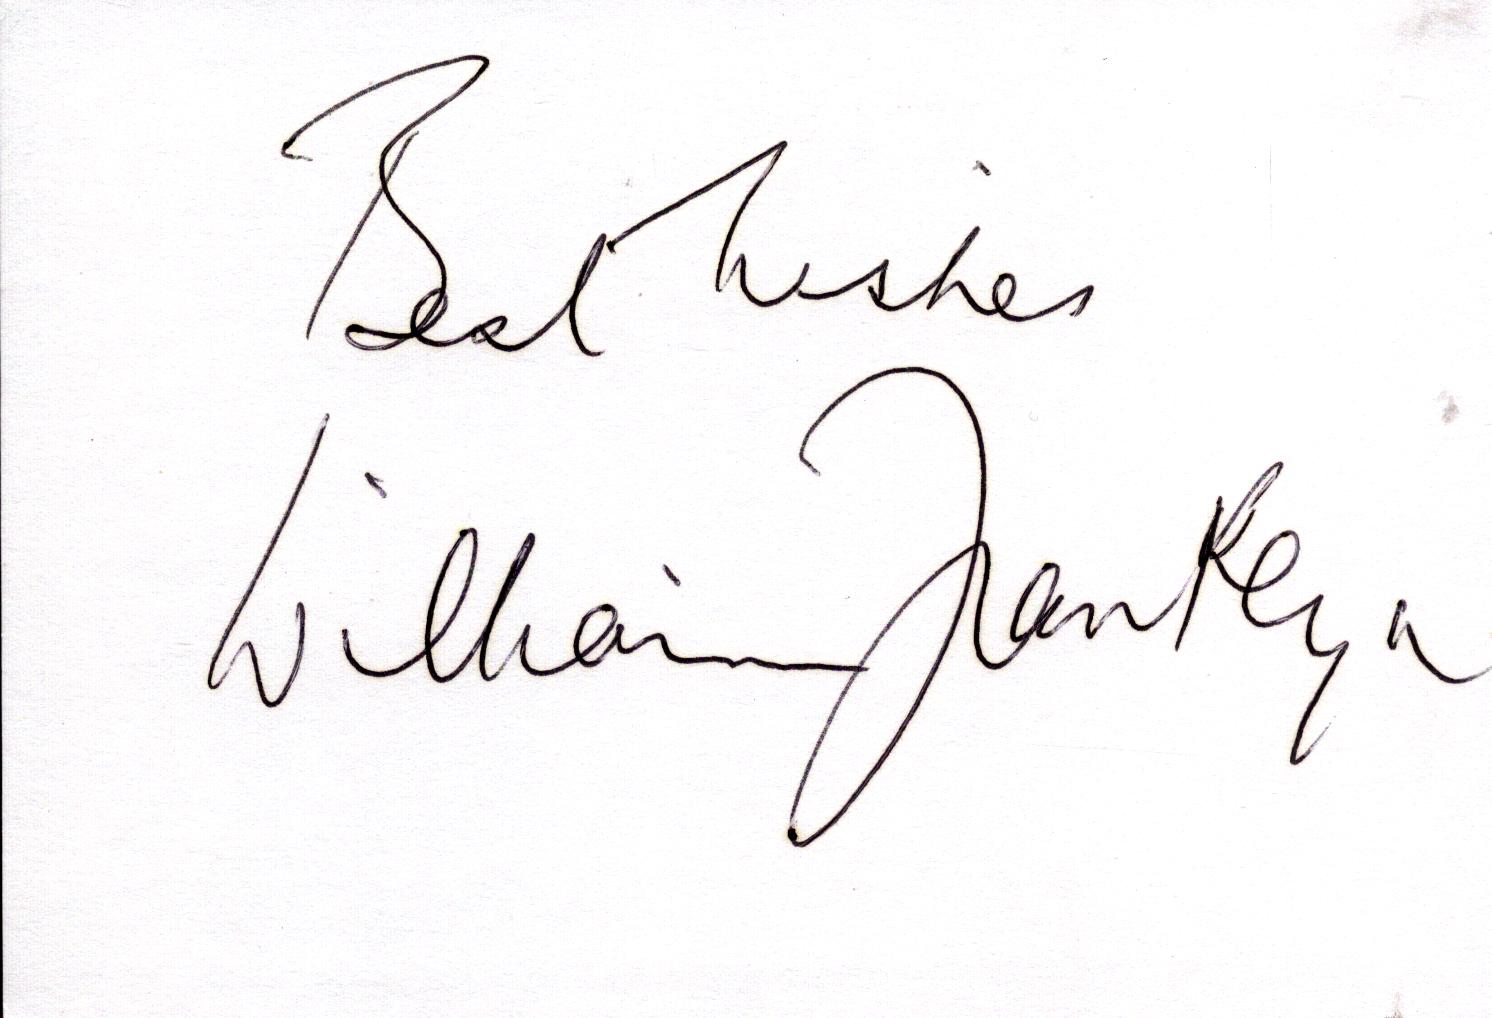 Best Wishes
William Franklyn